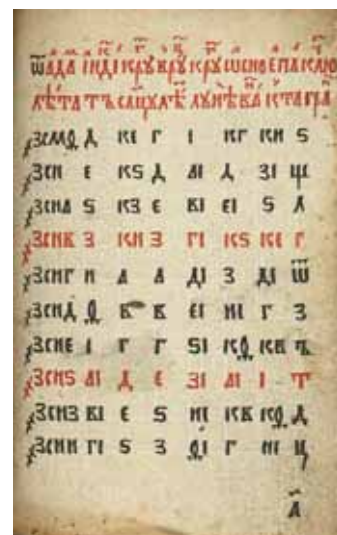 ѿада інді крꙋ врꙋ крꙋ ѡсно епа клю
лѣта тъ слцꙋ лѣ лꙋнѣ ва кта гра
҂зсмѳ д ке г і кг ки ѕ
҂зсн е кѕ д аі д зі щ
҂зсна ѕ кз е ві еі ѕ л
҂зснв з ки з гі кѕ ке г
҂зснг и а а ді з ді ѿ
҂зснд ѳ в в еі иі г з
҂зсне і г г ѕі кѳ кв ъ
҂зснѕ аі д е зі аі і т
҂зснз ві е ѕ иі кв кѳ д
҂зсни гі ѕ з ѳі г иі ц